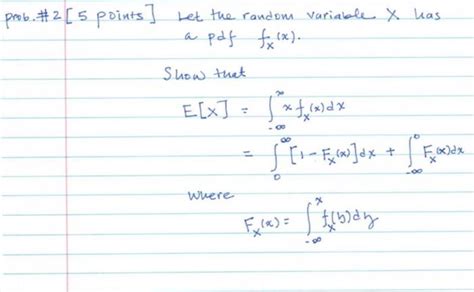 prob. #2 [5 points] Let the random variable X has
a pdf f_X(x).
Show that
E[X] = ∫_{-∞}^{∞} x f_X(x) dx
= ∫_0^∞ [1 - F_X(x)] dx + ∫_{-∞}^0 F_X(x) dx
where
F_X(x) = ∫_{-∞}^x f_X(y) dy